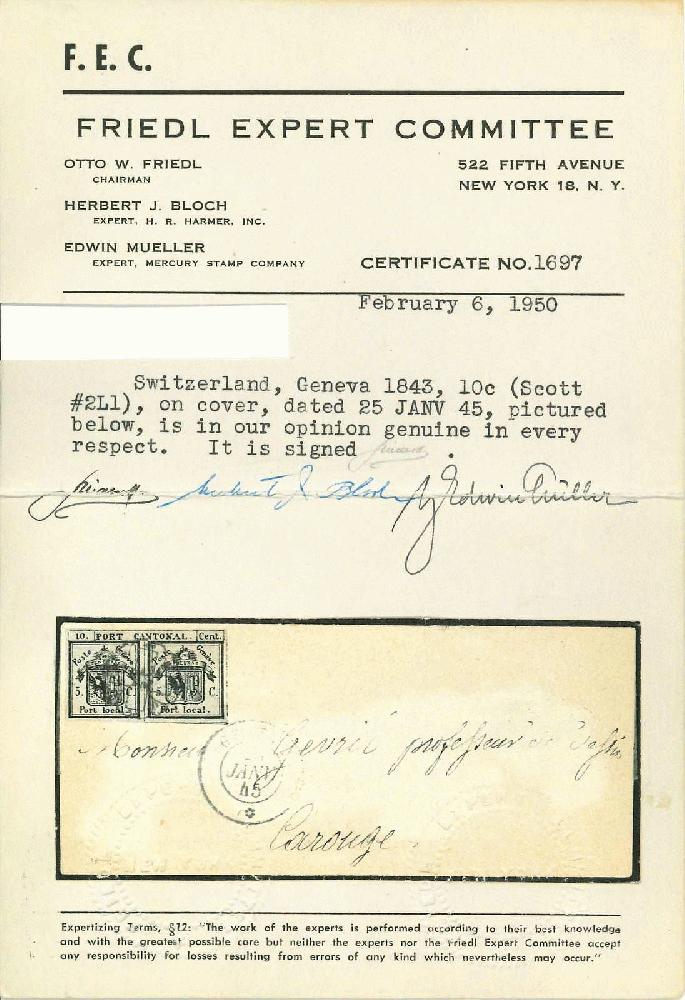 F. E. C.
FRIEDL EXPERT COMMITTEE
OTTO W. FRIEDL
CHAIRMAN
HERBERT J. BLOCH
EXPERT, H. R. HARMER, INC.
EDWIN MUELLER
EXPERT, MERCURY STAMP COMPANY
522 FIFTH AVENUE
NEW YORK 18, N. Y.
CERTIFICATE NO.1697
February 6, 1950
Switzerland, Geneva 1843, 10c (Scott
#2L1), on cover, dated 25 JANV 45, pictured
below, is in our opinion genuine in every
respect. It is signed .
Herbert J. Bloch Edwin Müller
10. PORT CANTONAL. Cent.
Poste de Genève Poste de Genève
5. C. 5. C.
Port local. Port local.
Monsieur professeur
JANV
45
Carouge
Expertizing Terms, §12: "The work of the experts is performed according to their best knowledge
and with the greatest possible care but neither the experts nor the Friedl Expert Committee accept
any responsibility for losses resulting from errors of any kind which nevertheless may occur."